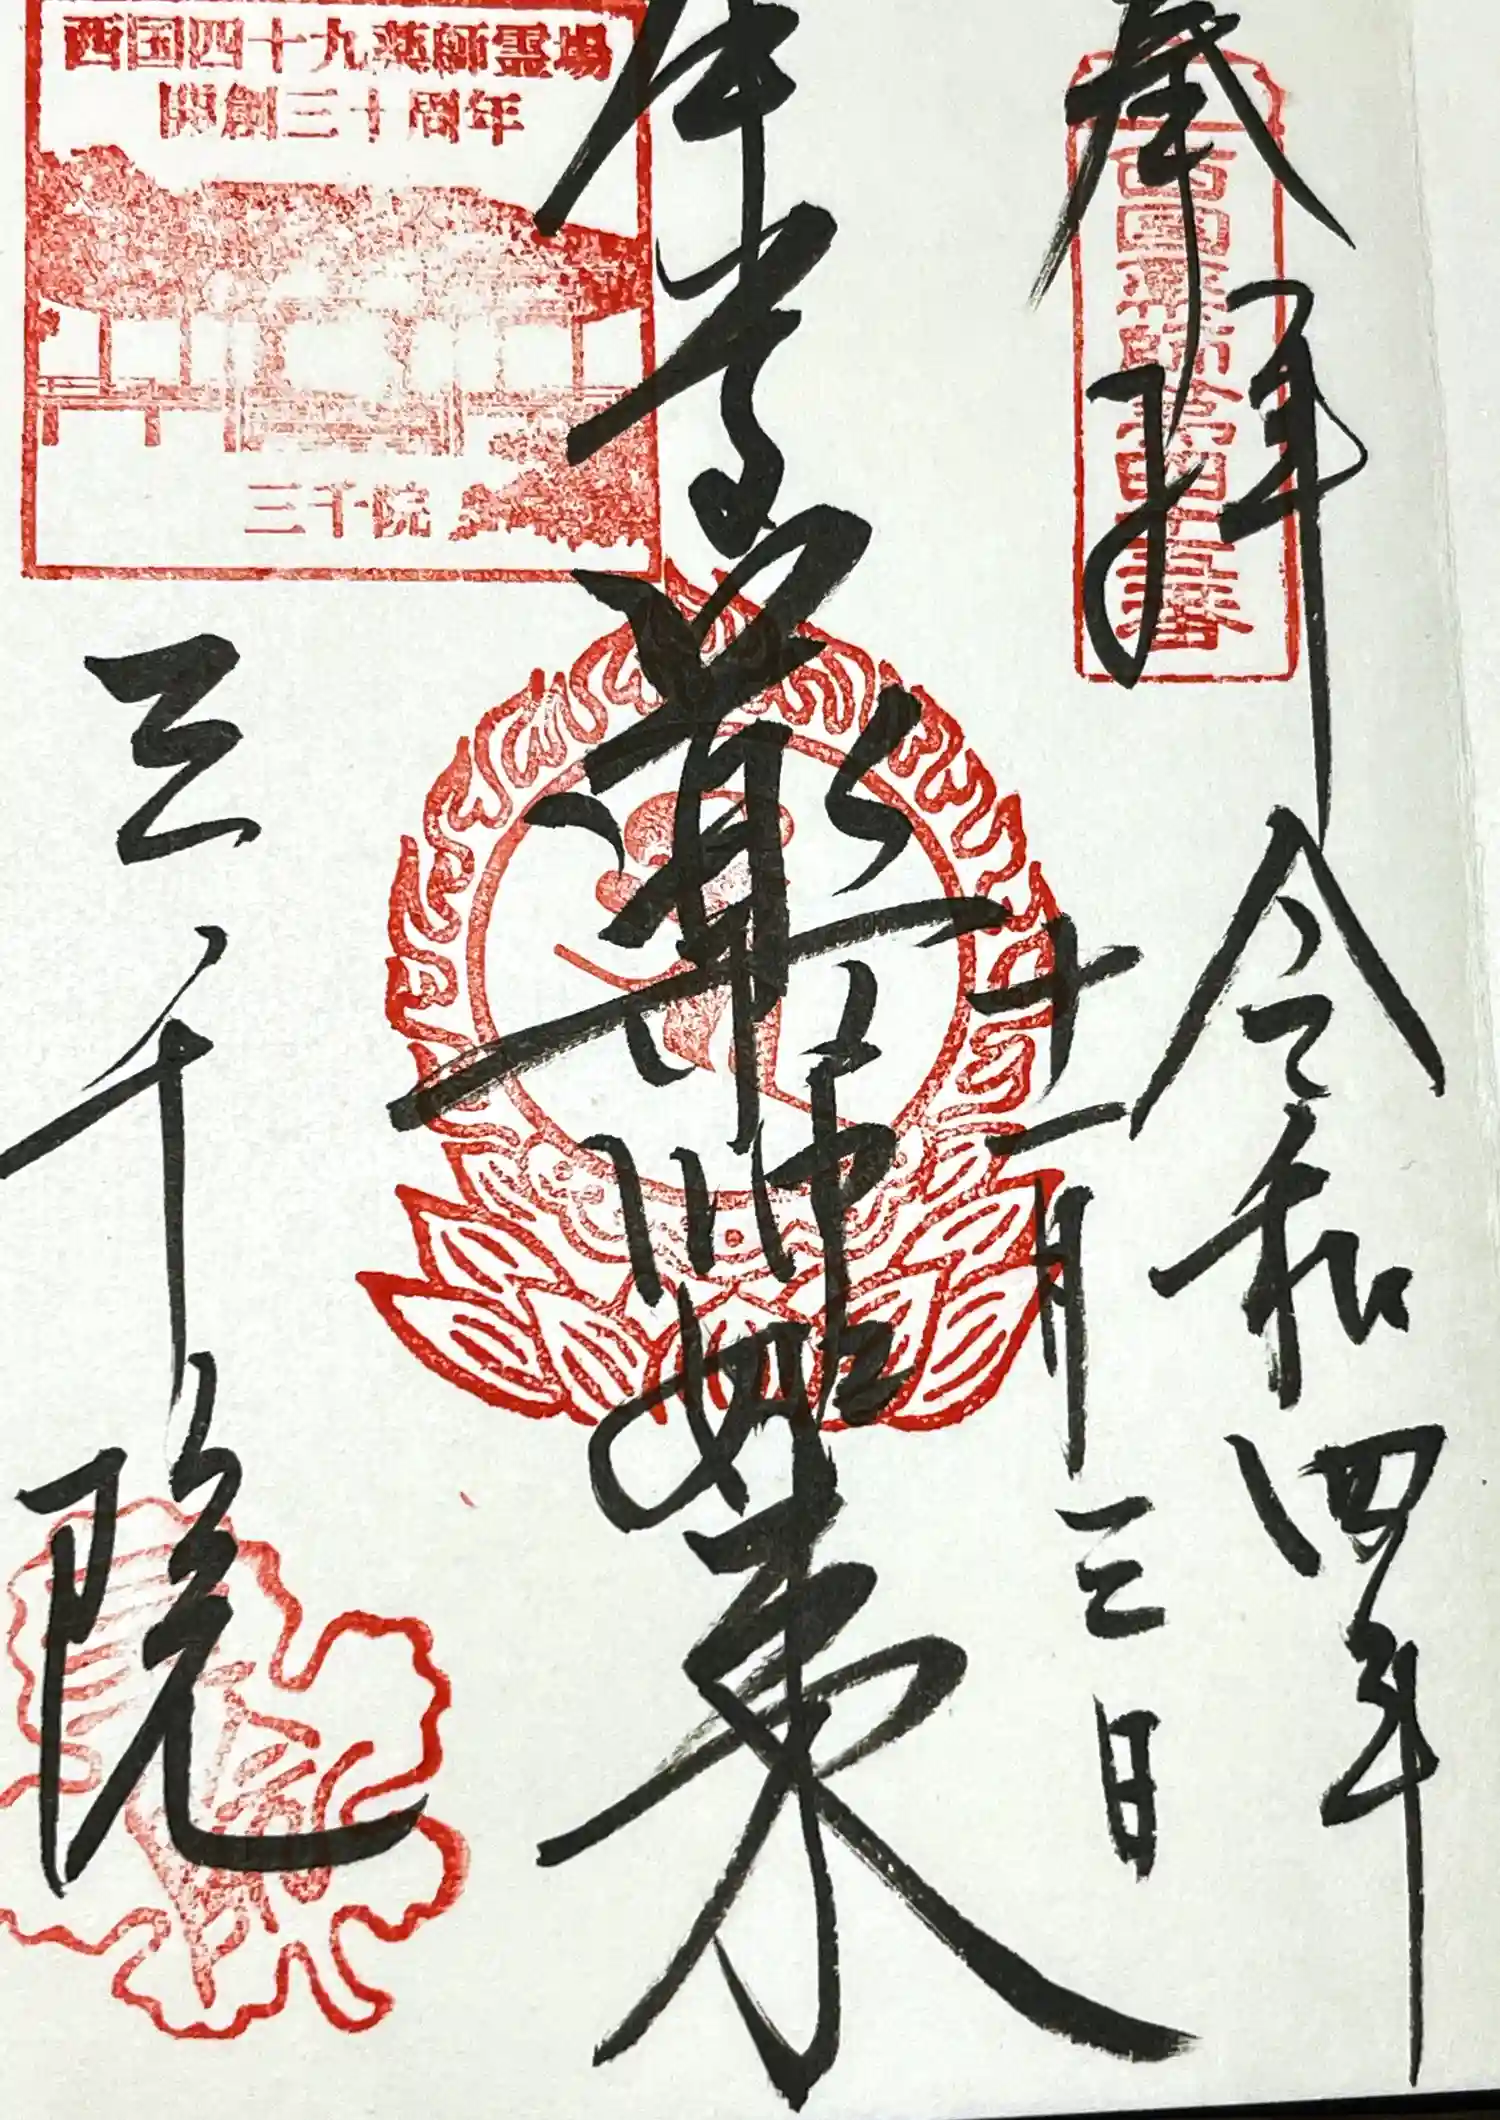 奉拝
西国薬師第四十五番
令和四年
十一月三日
本尊
薬師如来
西国四十九薬師霊場
開創三十周年
三千院
三千院